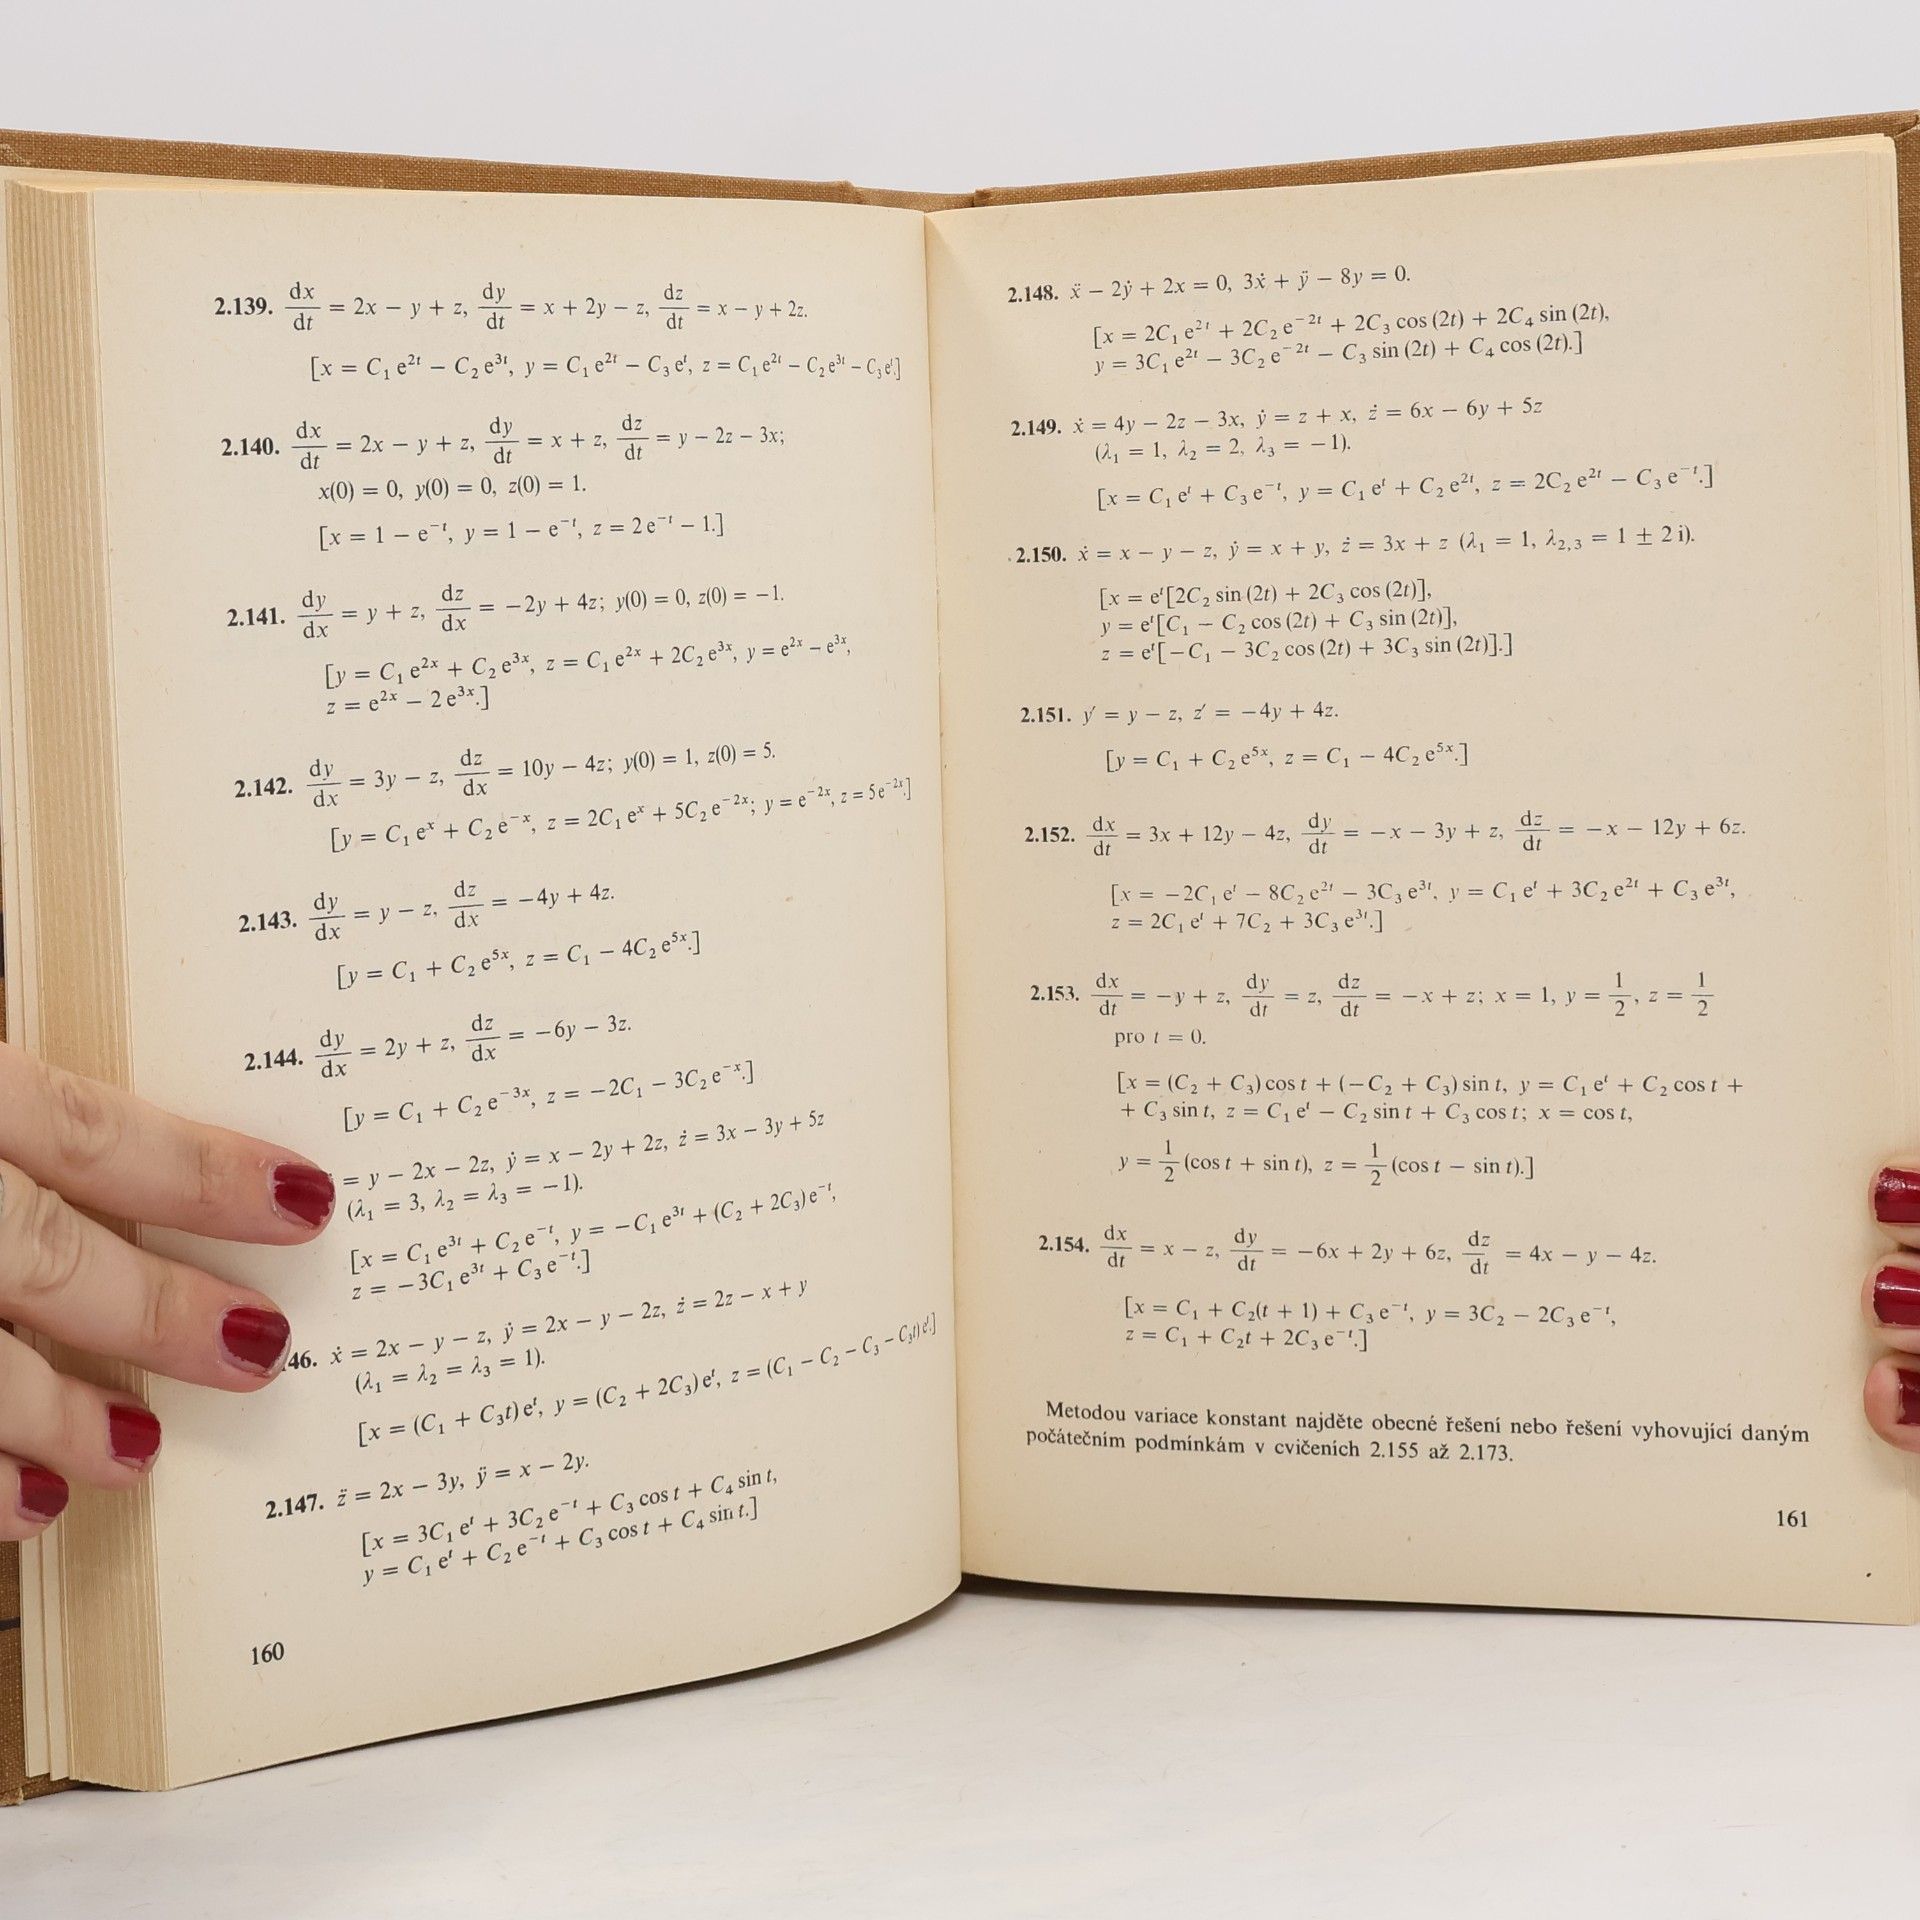 2.139. dx/dt = 2x − y + z, dy/dt = x + 2y − z, dz/dt = x − y + 2z.
[x = C₁ e²ᵗ − C₂ e³ᵗ, y = C₁ e²ᵗ − C₃ eᵗ, z = C₁ e²ᵗ − C₂ e³ᵗ − C₃ eᵗ.]
2.140. dx/dt = 2x − y + z, dy/dt = x + z, dz/dt = y − 2z − 3x;
x(0) = 0, y(0) = 0, z(0) = 1.
[x = 1 − e⁻ᵗ, y = 1 − e⁻ᵗ, z = 2 e⁻ᵗ − 1.]
2.141. dy/dx = y + z, dz/dx = −2y + 4z; y(0) = 0, z(0) = −1.
[y = C₁ e²ˣ + C₂ e³ˣ, z = C₁ e²ˣ + 2C₂ e³ˣ, y = e²ˣ − e³ˣ,
z = e²ˣ − 2 e³ˣ.]
2.142. dy/dx = 3y − z, dz/dx = 10y − 4z; y(0) = 1, z(0) = 5.
[y = C₁ eˣ + C₂ e⁻ˣ, z = 2C₁ eˣ + 5C₂ e⁻²ˣ; y = e⁻²ˣ, z = 5 e⁻²ˣ.]
2.143. dy/dx = y − z, dz/dx = −4y + 4z.
[y = C₁ + C₂ e⁵ˣ, z = C₁ − 4C₂ e⁵ˣ.]
2.144. dy/dx = 2y + z, dz/dx = −6y − 3z.
[y = C₁ + C₂ e⁻³ˣ, z = −2C₁ − 3C₂ e⁻ˣ.]
= y − 2x − 2z, ẏ = x − 2y + 2z, ż = 3x − 3y + 5z
(λ₁ = 3, λ₂ = λ₃ = −1).
[x = C₁ e³ᵗ + C₂ e⁻ᵗ, y = −C₁ e³ᵗ + (C₂ + 2C₃) e⁻ᵗ,
z = −3C₁ e³ᵗ + C₃ e⁻ᵗ.]
46. ẋ = 2x − y − z, ẏ = 2x − y − 2z, ż = 2z − x + y
(λ₁ = λ₂ = λ₃ = 1).
[x = (C₁ + C₃t) eᵗ, y = (C₂ + 2C₃) eᵗ, z = (C₁ − C₂ − C₃ − C₃t) eᵗ.]
2.147. z̈ = 2x − 3y, ÿ = x − 2y.
[x = 3C₁ eᵗ + 3C₂ e⁻ᵗ + C₃ cos t + C₄ sin t,
y = C₁ eᵗ + C₂ e⁻ᵗ + C₃ cos t + C₄ sin t.]
160
2.148. ẍ − 2ẏ + 2x = 0, 3ẋ + ÿ − 8y = 0.
[x = 2C₁ e²ᵗ + 2C₂ e⁻²ᵗ + 2C₃ cos (2t) + 2C₄ sin (2t),
y = 3C₁ e²ᵗ − 3C₂ e⁻²ᵗ − C₃ sin (2t) + C₄ cos (2t).]
2.149. ẋ = 4y − 2z − 3x, ẏ = z + x, ż = 6x − 6y + 5z
(λ₁ = 1, λ₂ = 2, λ₃ = −1).
[x = C₁ eᵗ + C₃ e⁻ᵗ, y = C₁ eᵗ + C₂ e²ᵗ, z = 2C₂ e²ᵗ − C₃ e⁻ᵗ.]
2.150. ẋ = x − y − z, ẏ = x + y, ż = 3x + z (λ₁ = 1, λ₂,₃ = 1 ± 2 i).
[x = eᵗ[2C₂ sin (2t) + 2C₃ cos (2t)],
y = eᵗ[C₁ − C₂ cos (2t) + C₃ sin (2t)],
z = eᵗ[−C₁ − 3C₂ cos (2t) + 3C₃ sin (2t)].]
2.151. y′ = y − z, z′ = −4y + 4z.
[y = C₁ + C₂ e⁵ˣ, z = C₁ − 4C₂ e⁵ˣ.]
2.152. dx/dt = 3x + 12y − 4z, dy/dt = −x − 3y + z, dz/dt = −x − 12y + 6z.
[x = −2C₁ eᵗ − 8C₂ e²ᵗ − 3C₃ e³ᵗ, y = C₁ eᵗ + 3C₂ e²ᵗ + C₃ e³ᵗ,
z = 2C₁ eᵗ + 7C₂ + 3C₃ e³ᵗ.]
2.153. dx/dt = −y + z, dy/dt = z, dz/dt = −x + z; x = 1, y = 1/2, z = 1/2
pro t = 0.
[x = (C₂ + C₃) cos t + (−C₂ + C₃) sin t, y = C₁ eᵗ + C₂ cos t +
+ C₃ sin t, z = C₁ eᵗ − C₂ sin t + C₃ cos t; x = cos t,
y = 1/2 (cos t + sin t), z = 1/2 (cos t − sin t).]
2.154. dx/dt = x − z, dy/dt = −6x + 2y + 6z, dz/dt = 4x − y − 4z.
[x = C₁ + C₂(t + 1) + C₃ e⁻ᵗ, y = 3C₂ − 2C₃ e⁻ᵗ,
z = C₁ + C₂t + 2C₃ e⁻ᵗ.]
Metodou variace konstant najděte obecné řešení nebo řešení vyhovující daným
počátečním podmínkám v cvičeních 2.155 až 2.173.
161